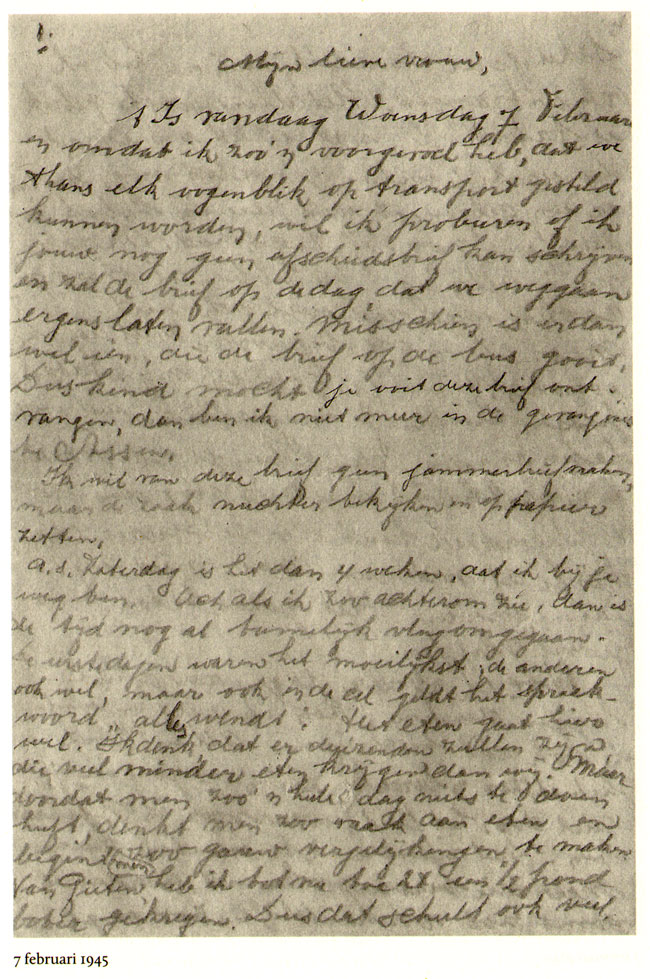 1.
Mijn lieve vrouw,
't Is vandaag Woensdag 7 Februari
en omdat ik zoo'n voorgevoel heb, dat we
thans elk oogenblik op transport gesteld
kunnen worden, wil ik probeeren of ik
jouw nog geen afscheidsbrief kan schrijven
en zal de brief op de dag, dat we weggaan
ergens laten vallen. Misschien is er dan
wel één, die de brief op de bus gooit.
Dus kind mocht je ooit deze brief ont-
vangen, dan ben ik niet meer in de gevangenis
te Assen.
Ik wil van deze brief geen jammerbrief maken,
maar de zaak nuchter bekijken en op papier
zetten.
a.s. Zaterdag is het dan 4 weken, dat ik bij je
weg ben. Ach als ik zoo achterom zie, dan is
de tijd nog al tamelijk vlug omgegaan.
De eerste dagen waren het moeilijkst, de anderen
ook wel, maar ook in de cel geldt het spreek-
woord „alles wendt". Het eten gaat hier
wel. Ik denk dat er duizenden zullen zijn
die veel minder eten krijgen dan wij. Maar
doordat men zoo'n heele dag niets te doen
heeft, denkt men zoo vaak aan eten en
begint men zoo gauw vergelijkingen te maken
Van Gieten heb ik tot nu toe een ½ pond
boter gekregen. Dus dat scheelt ook veel.
7 februari 1945